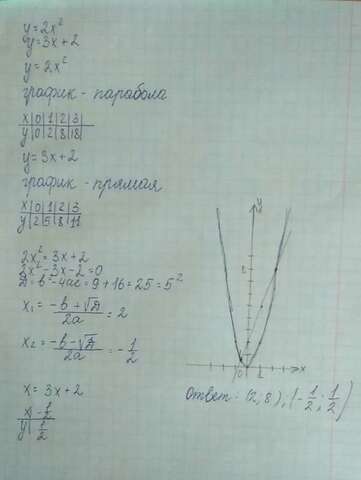 y=2x²
y=3x+2
y=2x²
график - парабола
x|0|1|2|3
y|0|2|8|18|
y=3x+2
график - прямая
x|0|1|2|3
y|2|5|8|11
2x²=3x+2
2x²-3x-2=0
D=b²-4ac=9+16=25=5²
x₁ = (-b+√D)/2a = 2
x₂ = (-b-√D)/2a = -1/2
x = 3x+2
x|-1/2
y|1/2
y
x
Ответ: (2;8), (-1/2; 1/2)